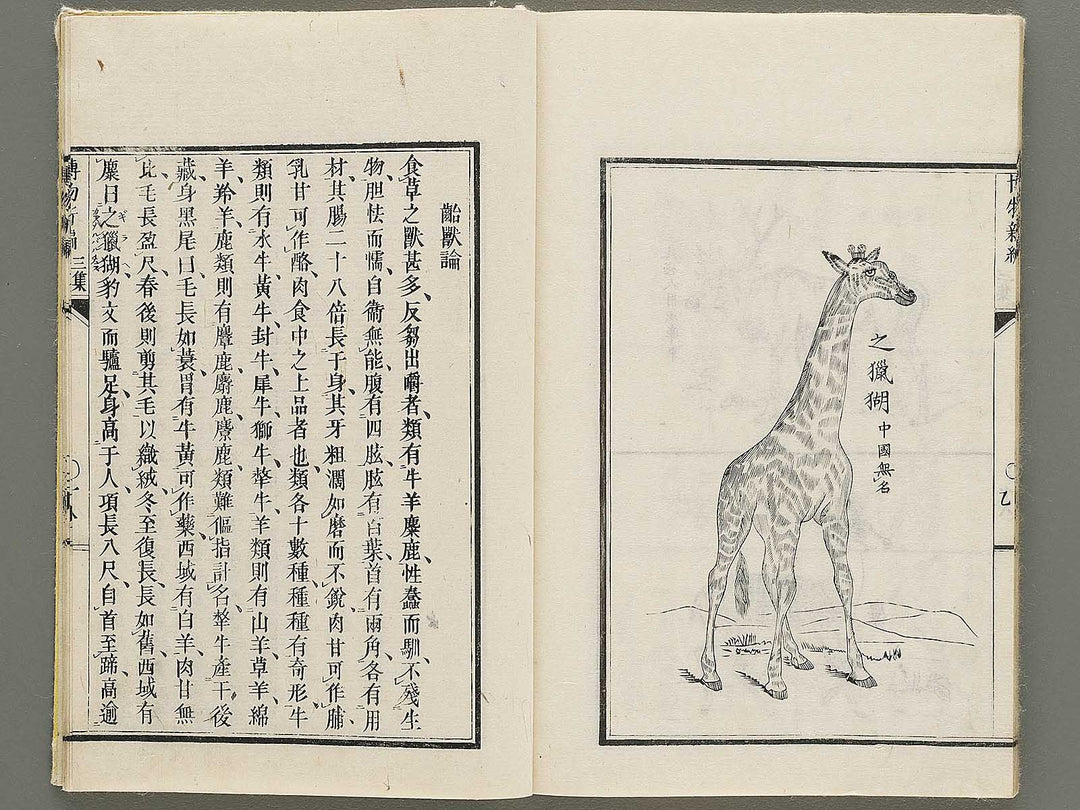 博物新編
之獵猢
中國無名
齝獸論
食草之獸甚多反芻出嚼者類有牛羊麋鹿性蠢而馴不殘生
物胆怯而懦自衞無能腹有四胘胘有百葉首有兩角各有用
材其腸二十八倍長于身其牙粗濶如磨而不銳肉甘可作脯
乳甘可作酪肉食中之上品者也類各十數種種種有奇形牛
類則有水牛黃牛封牛犀牛獅牛犛牛羊類則有山羊草羊綿
羊羚羊鹿類則有麞鹿麝鹿麖鹿類難傴指計名犛牛產干後
藏身黑尾曰毛長如蓑胃有牛黃可作藥西域有白羊肉甘無
比毛長盈尺春後則剪其毛以織絨冬至復長長如舊西域有
麋曰之獵猢豹文而驢足身高于人項長八尺自首至蹄高逾
博物新編 三集